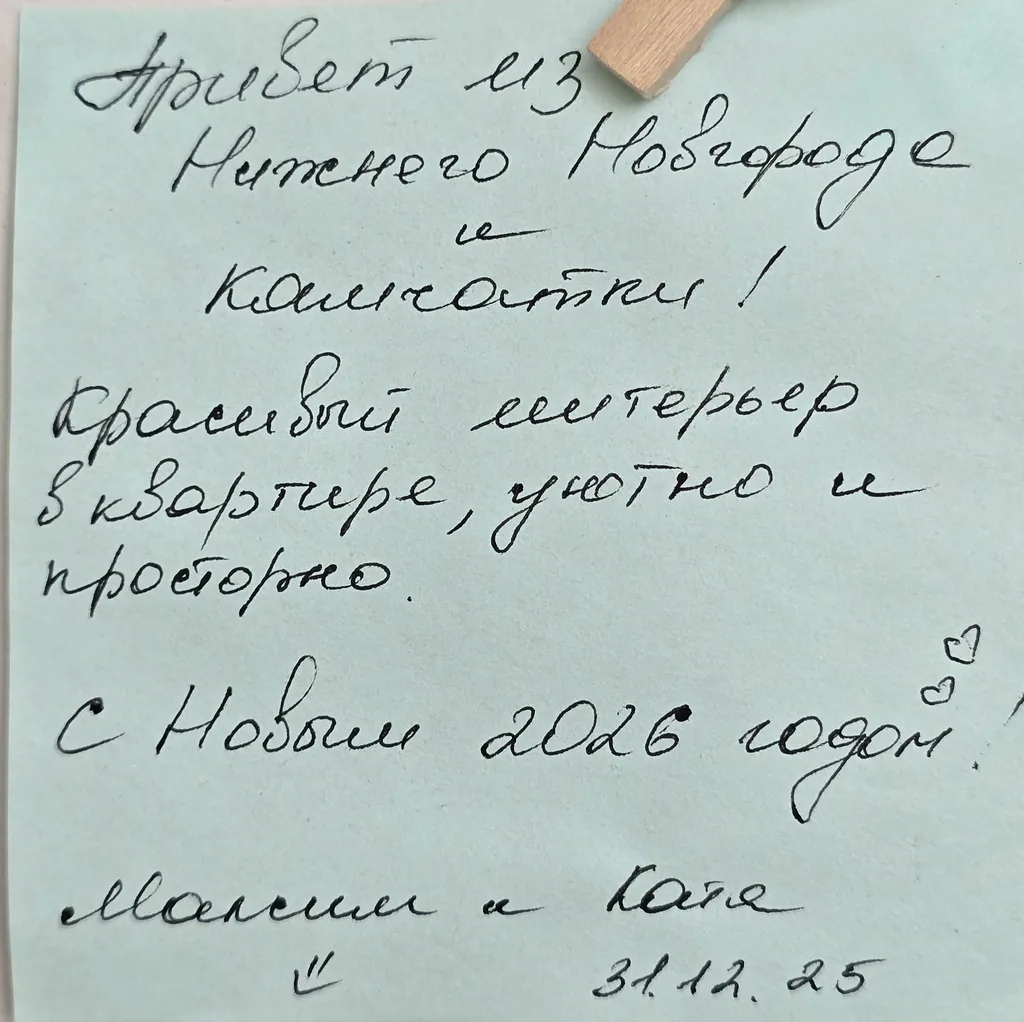 Привет из
Нижнего Новгорода
и
Камчатки!
Красивый интерьер
в квартире, уютно и
просторно.
С Новым 2026 годом!
Максим и Катя
31.12.25